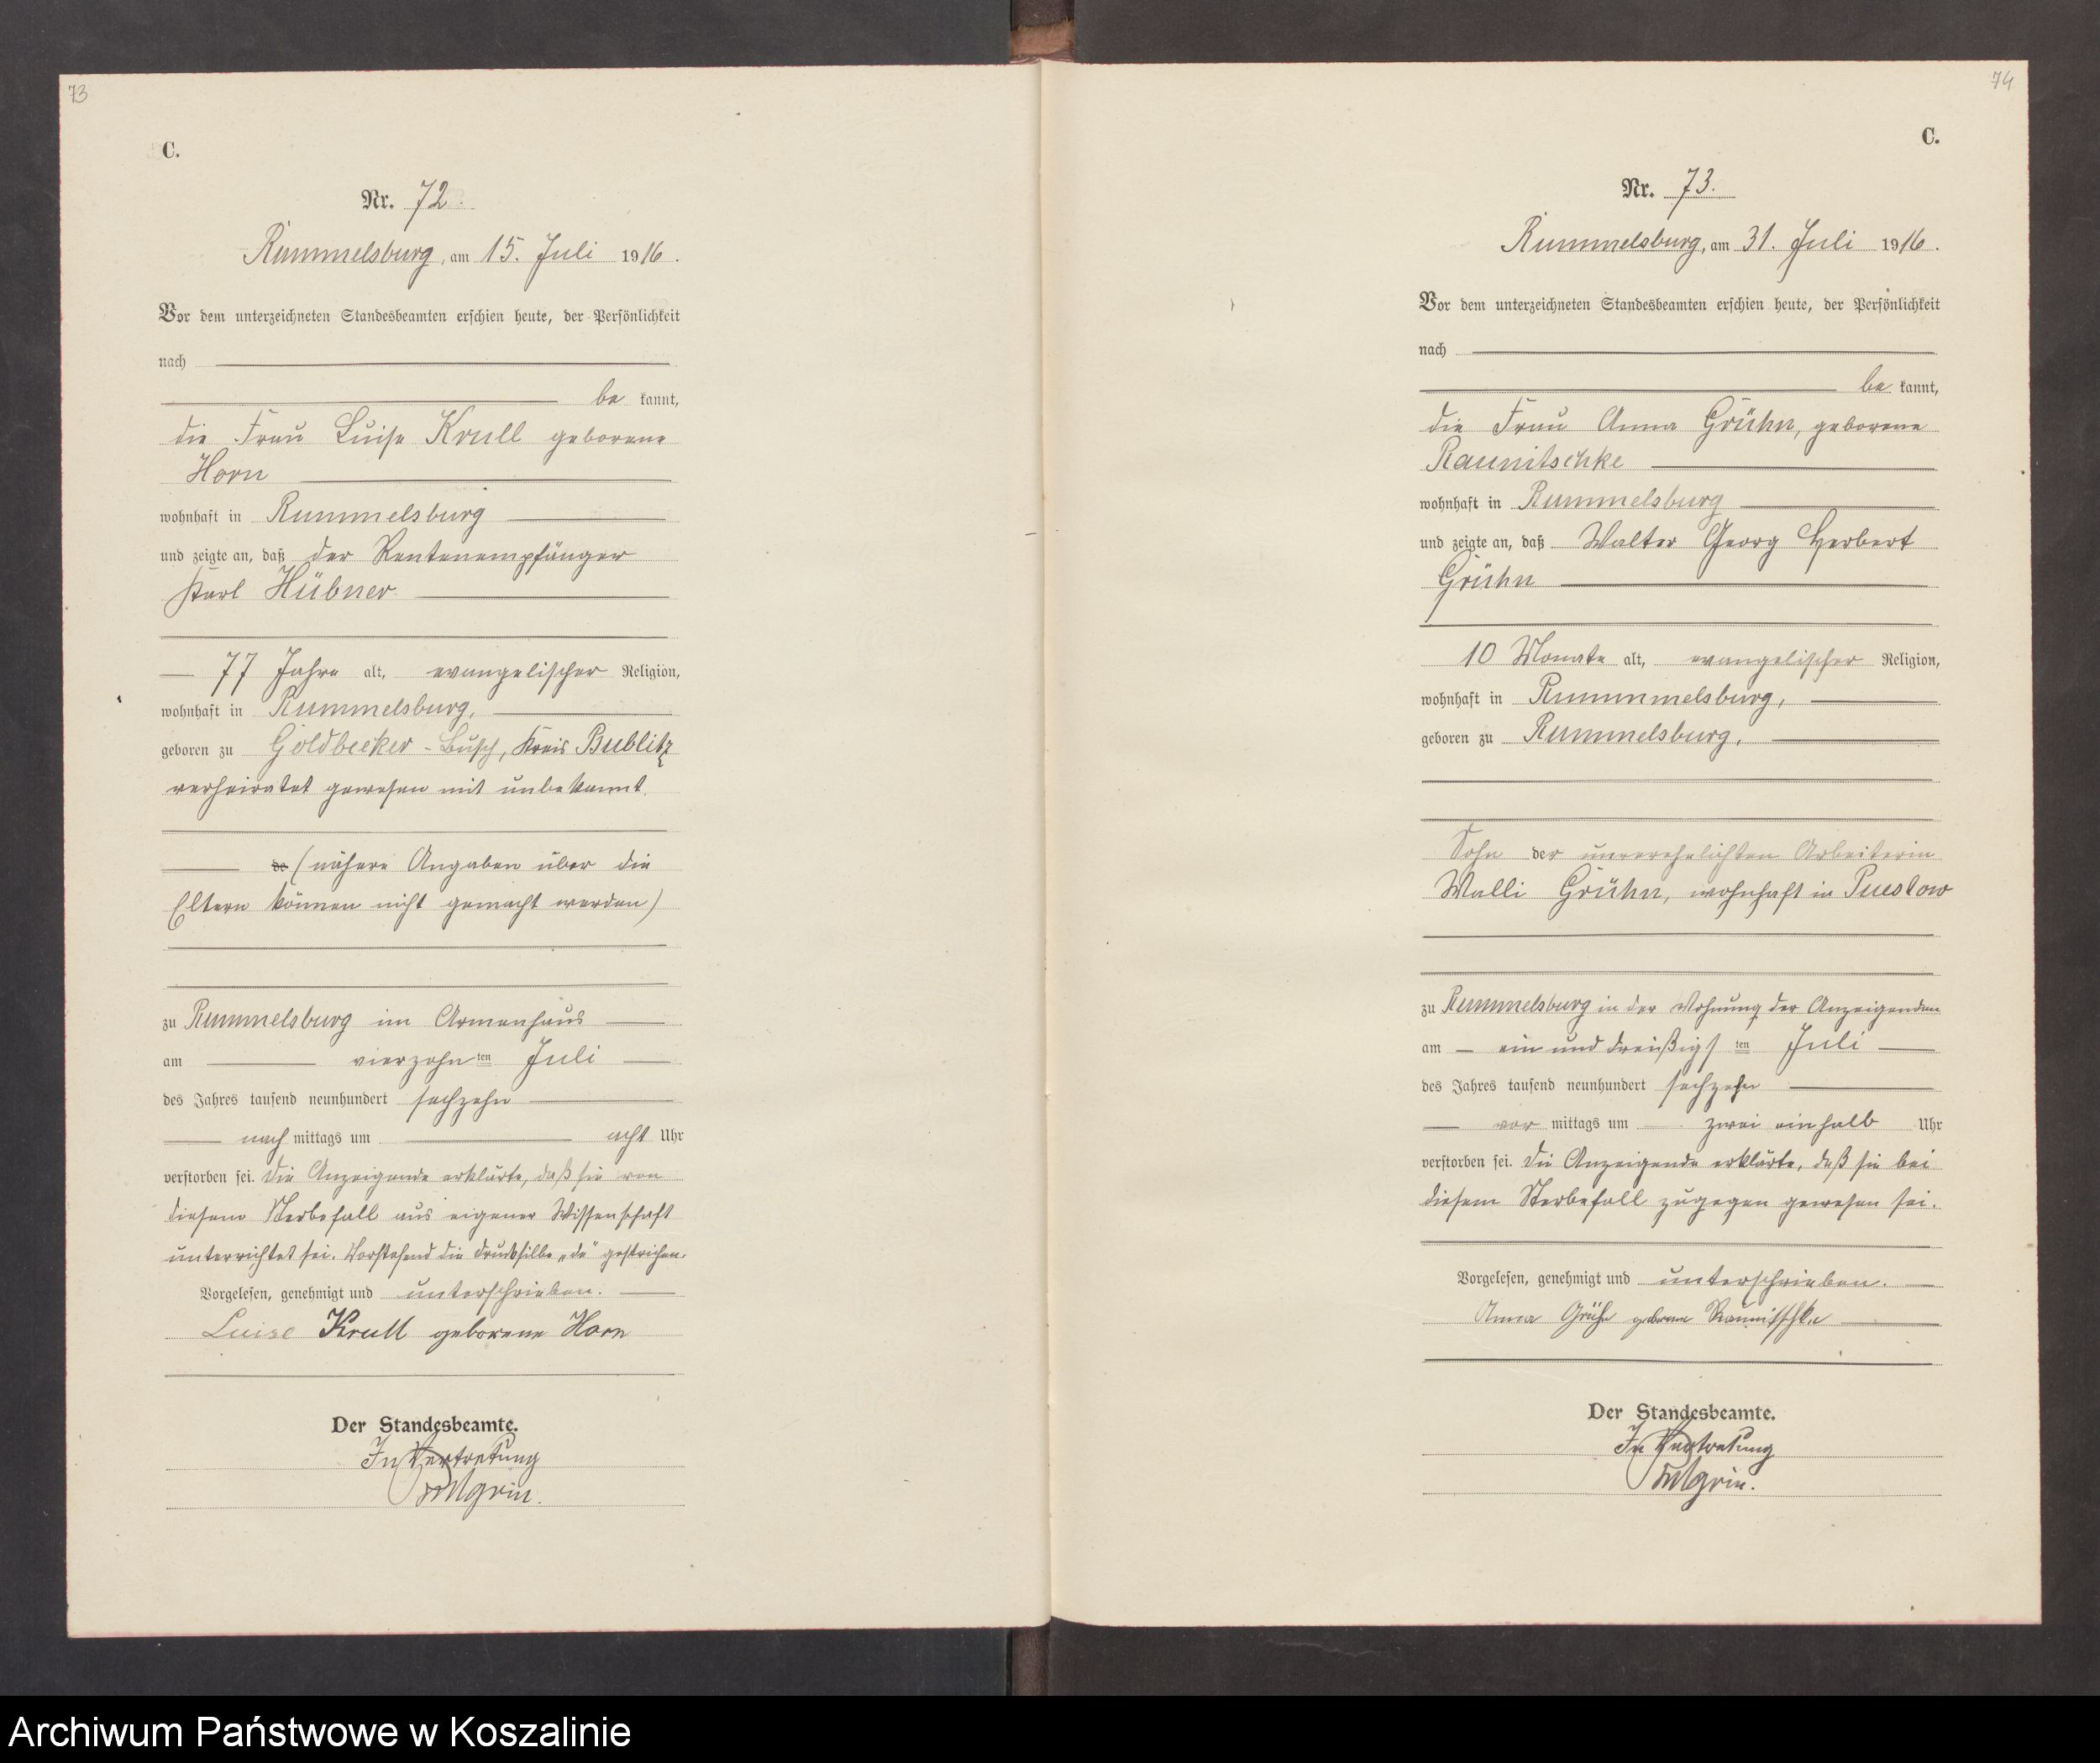 73
C.
Nr. 72.
Rummelsburg, am 15. Juli 1916.
Vor dem unterzeichneten Standesbeamten erschien heute, der Persönlichkeit
nach
be kannt,
die Frau Luise Krull geborene
Horn
wohnhaft in Rummelsburg
und zeigte an, daß der Rentenempfänger
Karl Hübner
77 Jahre alt, evangelischer Religion,
wohnhaft in Rummelsburg,
geboren zu Goldbecker-Busch, Kreis Bublitz
verheiratet gewesen mit unbekannt.
de (nähere Angaben über die
Eltern können nicht gemacht werden)
zu Rummelsburg im Armenhaus
am vierzehnten Juli
des Jahres tausend neunhundert sechzehn
nachmittags um acht Uhr
verstorben sei. Die Anzeigende erklärte, daß sie von
diesem Sterbefall aus eigener Wissenschaft
unterrichtet sei. Vorstehend die Drucksilbe „de“ gestrichen.
Vorgelesen, genehmigt und unterschrieben.
Luise Krull geborene Horn
Der Standesbeamte.
In Vertretung
74
C.
Nr. 73.
Rummelsburg, am 31. Juli 1916.
Vor dem unterzeichneten Standesbeamten erschien heute, der Persönlichkeit
nach
be kannt,
die Frau Anna Grühn, geborene
Raunitschke
wohnhaft in Rummelsburg
und zeigte an, daß Walter Georg Herbert
Grühn
10 Monate alt, evangelischer Religion,
wohnhaft in Rummelsburg,
geboren zu Rummelsburg,
Sohn der unverehelichten Arbeiterin
Walli Grühn, wohnhaft in Puestow
zu Rummelsburg in der Wohnung der Anzeigenden
am ein und dreißigsten Juli
des Jahres tausend neunhundert sechzehn
vormittags um zwei einhalb Uhr
verstorben sei. Die Anzeigende erklärte, daß sie bei
diesem Sterbefall zugegen gewesen sei.
Vorgelesen, genehmigt und unterschrieben.
Anna Grühn geborene Raunitschke
Der Standesbeamte.
In Vertretung
Archiwum Państwowe w Koszalinie